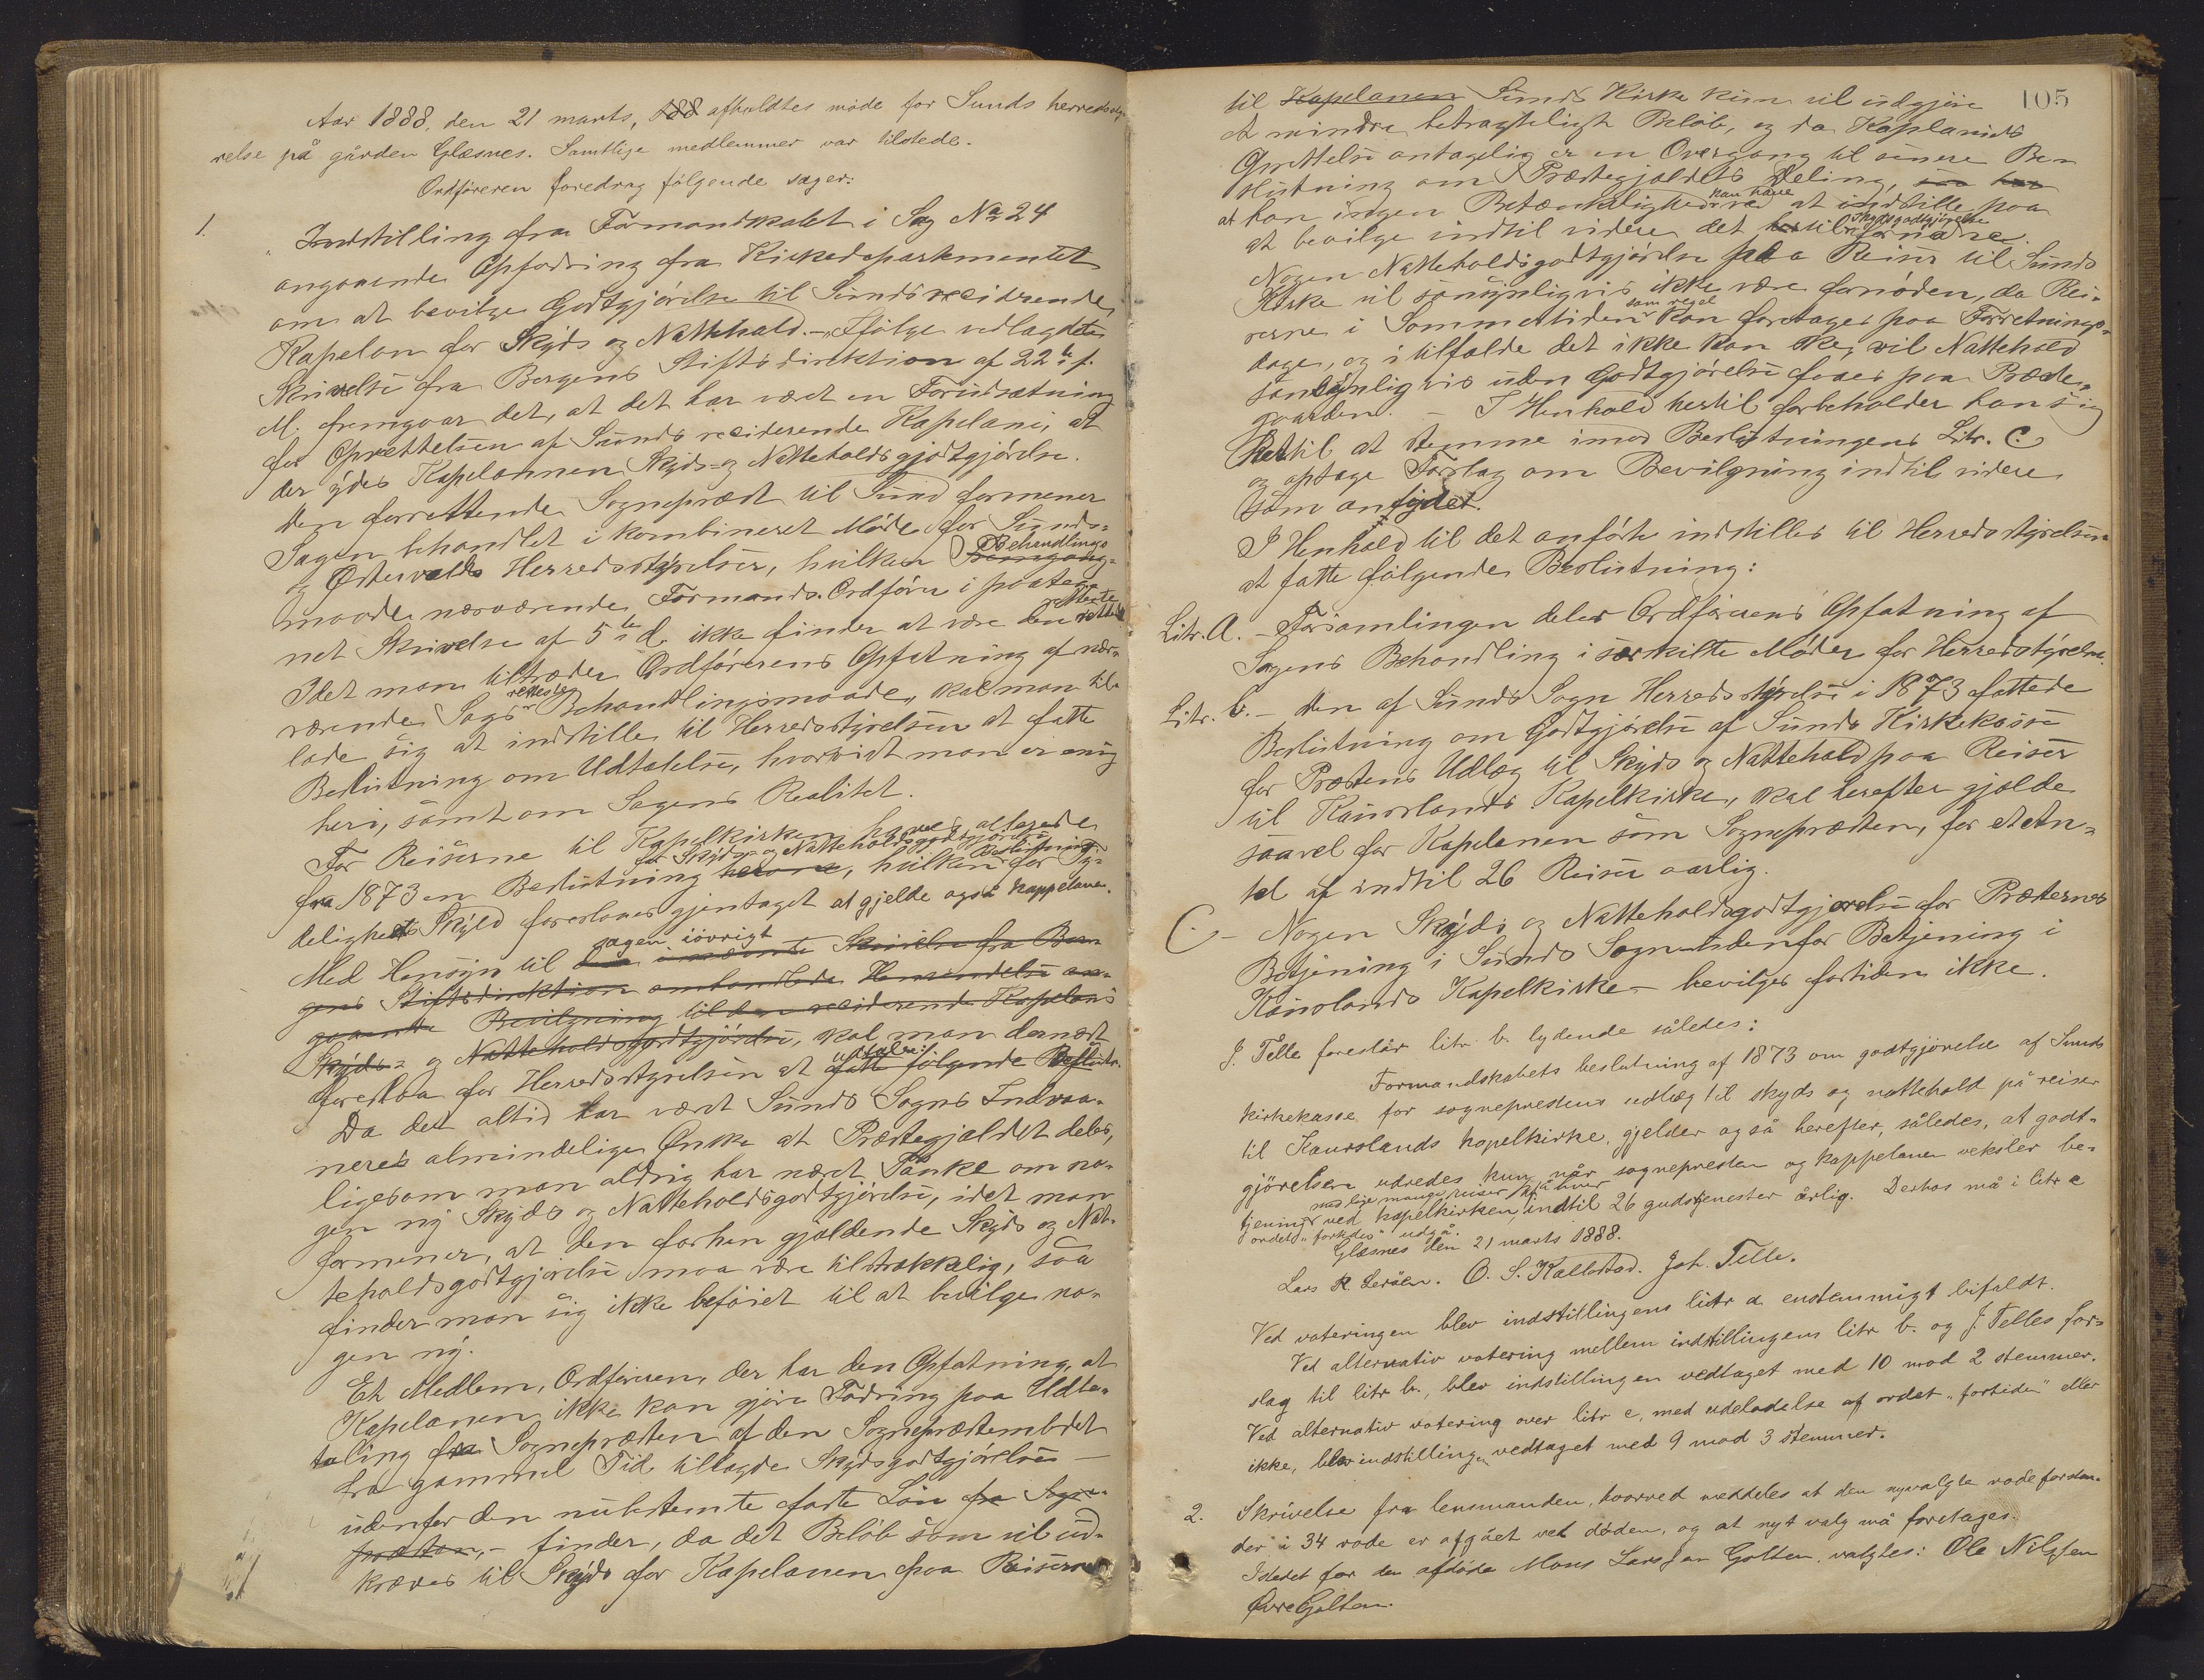 Aar 1888, den 21 marts, 188 afholdtes möde for Sunds herredssty-
relse på gården Glæsnes. Samtlige medlemmer var tilstede.
Ordföreren foredrog fölgende sager:
1.
Indstilling fra Formandskabet i Sag No 24
angaaende Opfodring fra Kirkedepartementet
om at bevilge Godtgjörelse til Sunds residerende
Kapelan for Skyds og Nattehold. – Ifölge vedlagdte
Skrivelse fra Bergens Stiftsdirektion af 22de f.
M. fremgaar det, at det har været en Forudsætning
for Oprettelsen af Sunds residerende Kapelani, at
der ydes Kapelannen Skyds- og Natteholdsgjodtgjörelse.
Den forrettende Sogneprest til Sund formener
Sagen behandlet i kombineret Möde for Sunds-
og Östervolds Herredsstyrelser, hvilken Behandlings
maade nærværende Formands. Ordförer i paateg-
net Skrivelse af 5te d. ikke finder at være den retteste
Idet man tiltræder Ordförerens Opfatning af nær-
værende Sags retteste Behandlingsmaade, skal man til-
lade sig at indstille til Herredsstyrelsen at fatte
Beslutning om Udtalelse, hvorvidt man er enig
heri, samt om Sagens Realitet.
For Reiserne til Kapelkirken haves allerede
for Skyds- og Natteholdsgodtgjörelse Beslutning
fra 1873 en Beslutning herom, hvilken for Ty-
deligheds Skyld foreslaaes gjentaget at gjelde også kappelanen.
sagen iövrigt
Med Hensyn til den i nævnte Skrivelse fra Ber-
gens Stiftsdirektion omhandlede Henvendelse an-
gaaende Bevilgning til den residerende Kapelans
Skyds- og Natteholdsgodtgjörelse, skal man dernæst
udtale:
foreslaa for Herredsstyrelsen at fatte fölgende Beslutn.
Da det altid har været Sunds Sogns Indvaa-
neres almindelige Önske at Præstegjældet deles,
ligesom man aldrig har næret Tanke om no-
gen ny Skyds og Natteholdsgodtgjörelse, idet man
formener, at den forhen gjældende Skyds og Nat-
teholdsgodtgjorelse maa være tilstrækkelig, saa
finder man sig ikke beföiet til at bevilge no-
gen ny.
Et Medlem, Ordföreren, der har den Opfatning, at
Kapelanen ikke kan gjöre Fodring paa Udbe-
taling fra Sognepresten af den Sogneprestembedet
fra gammel Tid tillagde Skydsgodtgjörelse –
udenfor den nubestemte faste Lön fra Sogne-
præsten, – finder, da det Beløb som vil ud-
kræves til Skyds for Kapelanen paa Reiserne
105
til Kapelanen Sunds Kirke kun vil udgjöre
et mindre betragteligt Belöb, og da Kaplaniets
Oprettelse antagelig er en Overgang til senere Be-
slutning om Præstegjældets Deling, saa har
at han ingen Betænkelighed kan have ved at indstille paa
at bevilge indtil videre det hertil fornödne Skydsgodtgjörelse.
Nogen Natteholdsgodtgjörelse paa Reiser til Sunds
Kirke vil sandsynligvis ikke være fornöden, da Rei-
serne i Sommertiden som regel kan foretages paa Forretnings-
dage, og i tilfælde det ikke kan ske, vil Nattehold
sandsynligvis uden Godtgjörelse faaes paa Præste-
gaarden. – I Henhold hertil forbeholder han sig
Ret til at stemme imod Beslutningens Litr. C.
og optage Forslag om Bevilgning indtil videre
som antydet.
I Henhold til det anförte indstilles til Herredsstyrelsen
at fatte fölgende Beslutning:
Litr. A. – Forsamlingen deler Ordförerens Opfatning af
Sagens Behandling i særskilte Möder for Herredsstyrelsen.
Litr. b. – Den af Sunds Sogn Herredsstyrelse i 1873 fattede
Beslutning om Godtgjörelse af Sunds Kirkekasse
for Præstens Udlæg til Skyds og Nattehold paa Reiser
til Kausslands Kapelkirke, skal herefter gjælde
saavel for Kapelanen som Sognepræsten, for et An-
tal af indtil 26 Reiser aarlig.
C. – Nogen Skyds og Natteholdsgodtgjorelse for Præsternes
Betjening i Sunds Sogn – udenfor Betjening i
Kauslands Kapelkirke – bevilges fortiden ikke.
J. Telle foreslår litr. b. lydende således:
Formandskabets beslutning af 1873 om godtgjörelse af Sunds
kirkekasse for sogneprestens udlæg til skyds og nattehold på reiser
til Kausslands kapelkirke, gjelder også herefter, således, at godt-
gjörelsen udredes kun når sognepresten og kappelanen veksler be-
med lige mange reiser på hver
tjening ved kapelkirken, indtil 26 gudstjenester årlig. Derhos må i litr c
ordet "fortiden" udgå.
Glæsnes den 21 marts 1888.
Lars R. Leröen. O. S. Kallestad. Joh. Telle.
Ved voteringen blev indstillingens litr a enstemmigt bifaldt.
Ved alternativ votering mellem indstillingens litr b. og J. Telles for-
slag til litr b., blev indstillingen vedtaget med 10 mod 2 stemmer.
Ved alternativ votering over litr c, med udeladelse af ordet "fortiden" eller
ikke, blev indstillingen vedtaget med 9 mod 3 stemmer.
2. Skrivelse fra lensmanden, hvorved meddeles at den nyvalgte rodeforstan-
der i 34 rode er afgået ved döden, og at nyt valg må foretages.
Istedet for den afdöde Mons Larsen Golten valgtes: Ole Nilssen
Övre Golten.